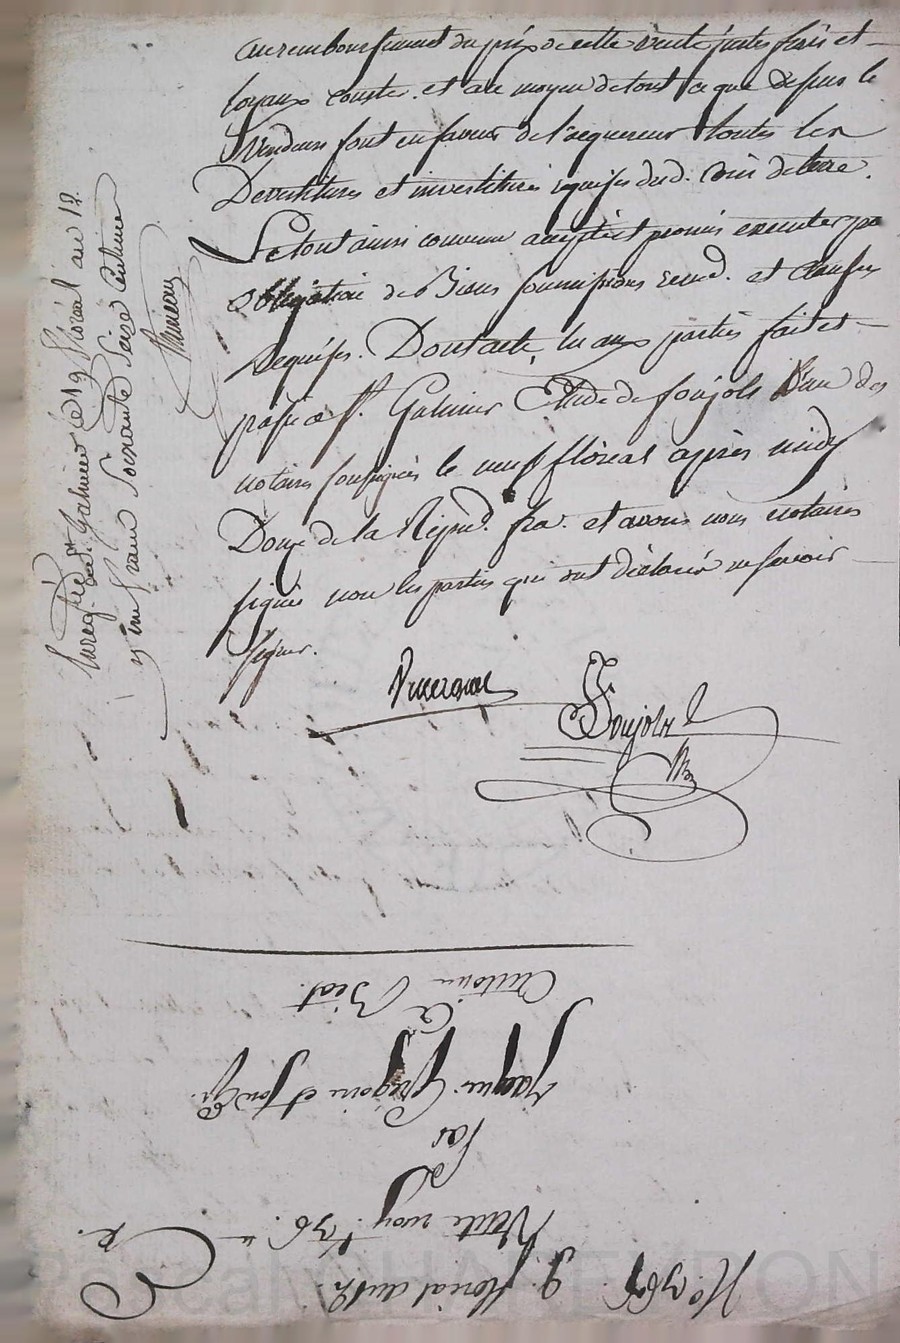 au remboursement du prix de cette vente justes frais et
loyaux couster. et au moyen de tout ce que dessus le
Vendeurs font en faveur de l'acquereur toutes les
Devestitures et investitures requises dud. coin de terre.
Le tout ainsi convenu accepté et promis executer par
obligation de Biens soumissions renod. et clauses
requises. Dont acte, lu aux parties fait et
passé a St. Galmier Etude de foujols l'un des
notaires soussignés le neuf floreal après midy
Douze de la Repud. fra. et avons nous notaires
signé non les parties qui ont déclaré ne savoir
signer.
Foujols
Nre
Enregtré a St. Galmier le 19 floréal an 12.
un franc Soixante Seize Centimes
No. 367 9. floréal an 12
Vente moy. 36.
Par
Jacques Grégoire et son fr.
a
Antoine Biat.
Pascal CHAPEYRON